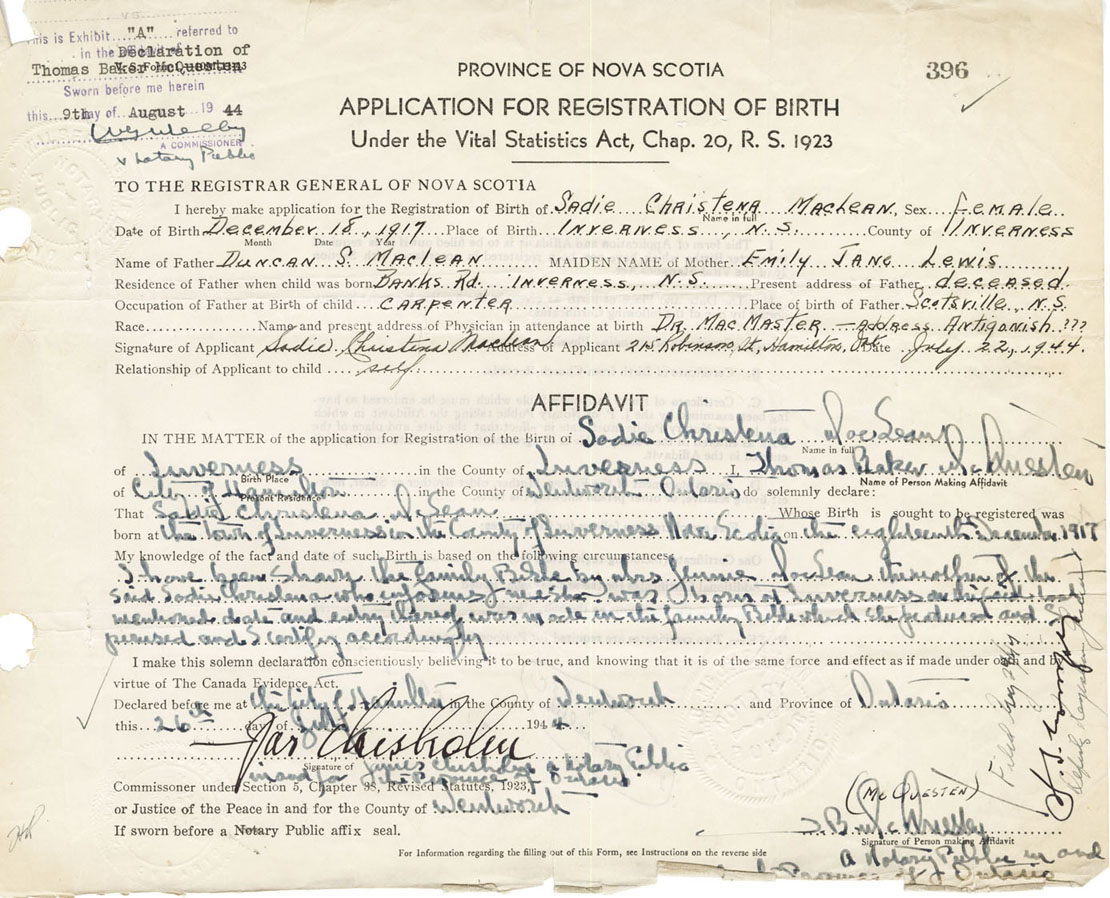 This is Exhibit "A" referred to
in the Declaration of
Thomas Baker McQuesten
Sworn before me herein
this 9th day of August 1944
A COMMISSIONER
Notary Public
396
PROVINCE OF NOVA SCOTIA
APPLICATION FOR REGISTRATION OF BIRTH
Under the Vital Statistics Act, Chap. 20, R. S. 1923
TO THE REGISTRAR GENERAL OF NOVA SCOTIA
I hereby make application for the Registration of Birth of Sadie Christena MacLean, Sex Female
Name in full
Date of Birth December 18, 1917 Place of Birth Inverness, N.S. County of Inverness
Month Date Year
Name of Father Duncan S. MacLean MAIDEN NAME of Mother Emily Jane Lewis
Residence of Father when child was born Banks Rd. Inverness, N.S. Present address of Father deceased
Occupation of Father at Birth of child Carpenter Place of birth of Father Scotsville, N.S.
Race Name and present address of Physician in attendance at birth Dr. MacMaster - Address Antiganish ???
Signature of Applicant Sadie Christena MacLean Address of Applicant 215 Robinson St, Hamilton, Ont Date July 22, 1944
Relationship of Applicant to child self
AFFIDAVIT
IN THE MATTER of the application for Registration of the Birth of Sadie Christena MacLean
Name in full
of Inverness in the County of Inverness I, Thomas Baker McQuesten
Birth Place Name of Person Making Affidavit
of City of Hamilton in the County of Wentworth Ontario do solemnly declare:
Present Residence
That Sadie Christena McLean Whose Birth is sought to be registered was
born at the town of Inverness in the County of Inverness Nova Scotia on the eighteenth December 1917
My knowledge of the fact and date of such Birth is based on the following circumstances
I have been shown the family Bible by Mrs Jennie MacLean the mother of the
said Sadie Christena who informs me she was born at Inverness on the said last
mentioned date and entry thereof was made in the family Bible which she produced and I
perused and I certify accordingly
I make this solemn declaration conscientiously believing it to be true, and knowing that it is of the same force and effect as if made under oath and by
virtue of The Canada Evidence Act.
Declared before me at the City of Hamilton in the County of Wentworth and Province of Ontario
this 26th day of July 1944
Jas Chisholm
Signature of
James Chisholm a Notary Public
in and for the Province of Ontario
Commissioner under Section 5, Chapter 38, Revised Statutes, 1923,
or Justice of the Peace in and for the County of Wentworth
If sworn before a Notary Public affix seal.
(McQuesten)
T B McQuesten
Signature of Person making Affidavit
A Notary Public in and
Province of Ontario
For Information regarding the filling out of this Form, see Instructions on the reverse side